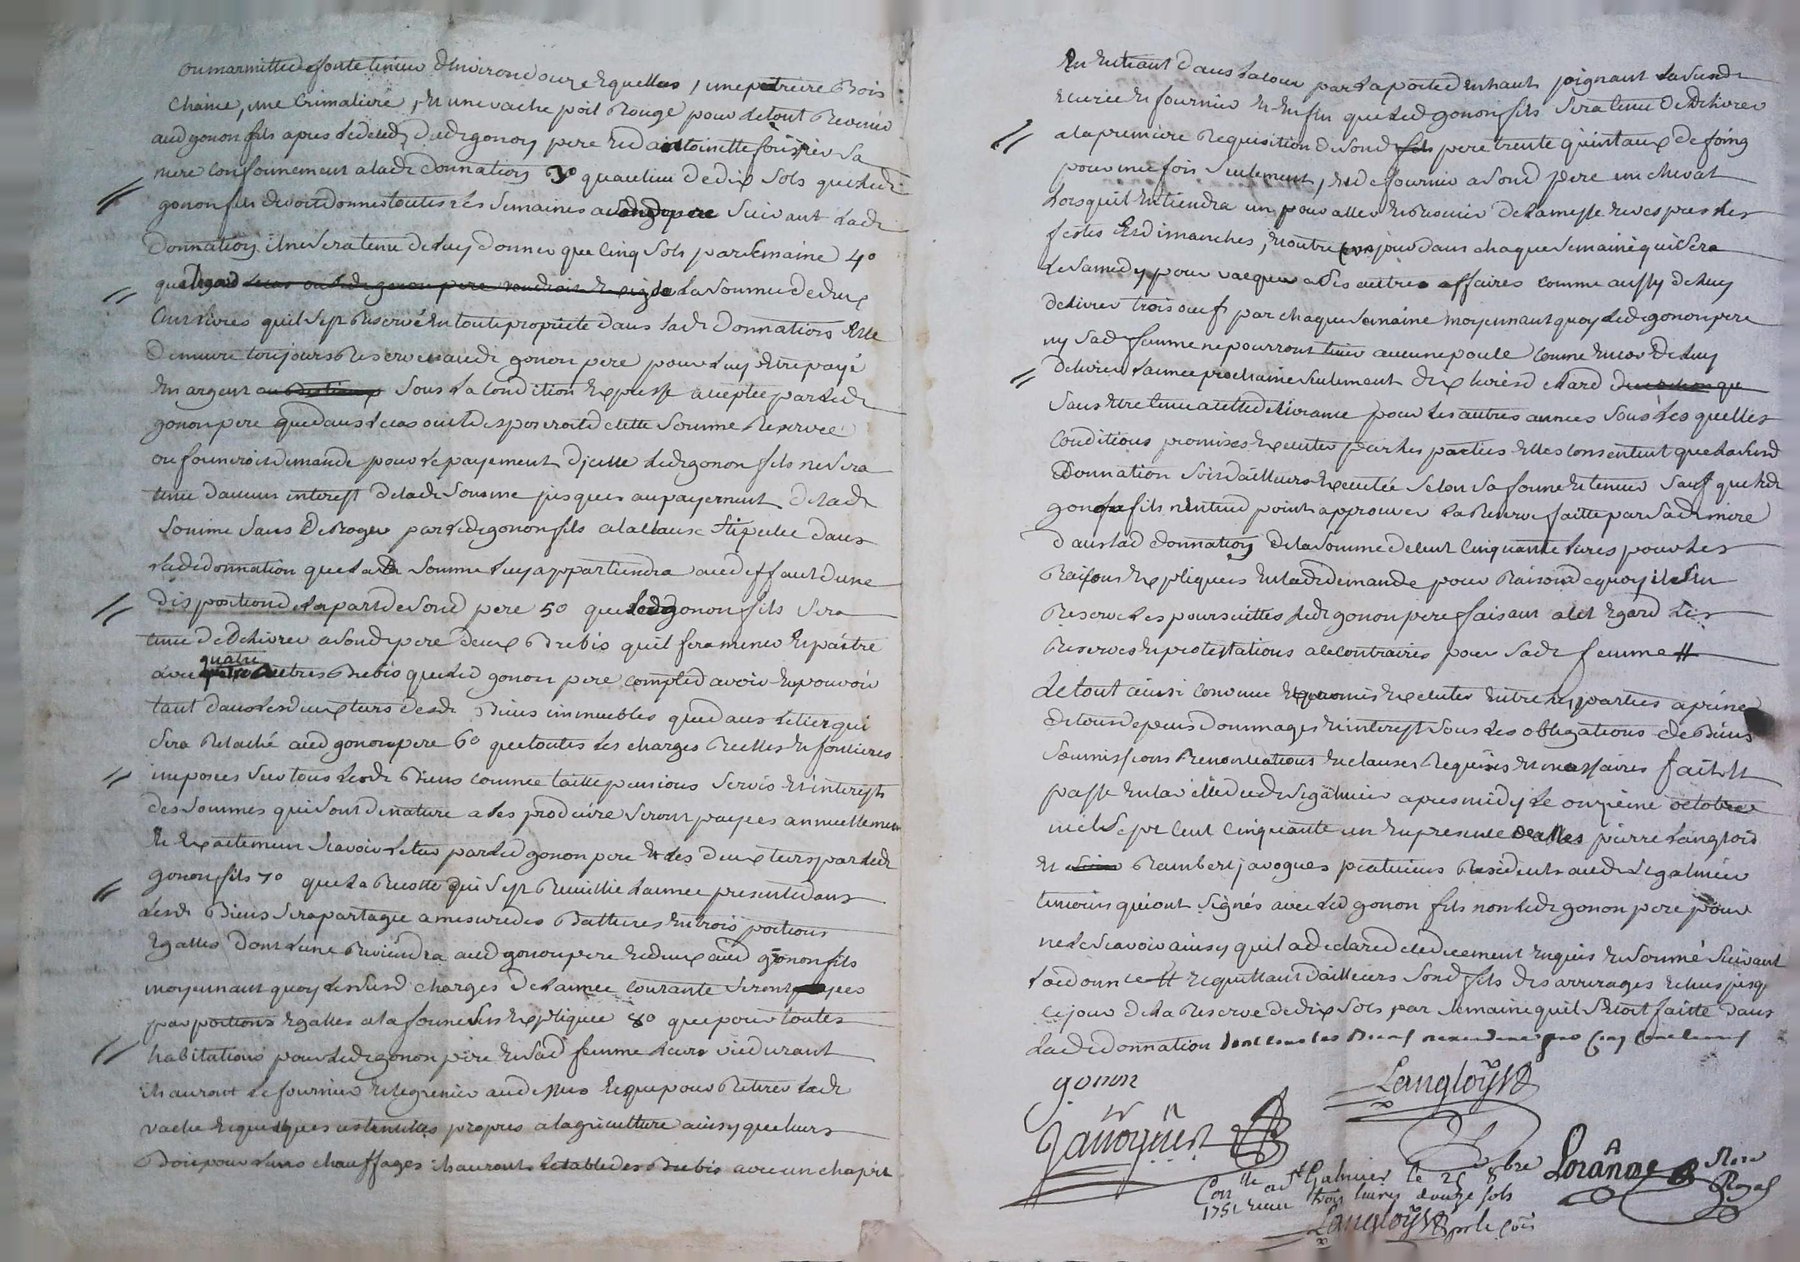 ou marmitte de fonte tenieu d'environ douze Equelles, une petriere Bois
chaine, une Crimaliere, Et une vache poil Rouge pour le tout Revenir
aud gonon fils apres le deced dudt gonon pere Et d'antoinette fournier sa
mere Conformement a ladte donnation 3° qu'au lieu de dix sols que ledt
gonon fils devoit donner toutes les semaines a sond pere suivant ladte
Donnation il ne sera tenu de luy donner que Cinq sols par semaine 4°
qu'a legard la somme de deux
Cent livres qu'il s'est Reservé En toute propriété dans ladte Donnation Elle
Demeure toujours Reservée audt gonon pere pour luy Etre payé
En argent sous la Condition Expresse acceptée par ledt
gonon pere que dans le cas ou il disposeroit de cette somme Reservée
ou formeroit demande pour le payement d'jcelle ledt gonon fils ne sera
tenu d'aucun interest de ladte somme jusques au payement de ladte
somme sans Deroger par ledt gonon fils a la clause stipulée dans
ladte donnation que ladte somme luy appartiendra au deffaut d'une
disposition de la part de sond pere 5° que ledt gonon fils sera
tenu de Delivrer a sond pere deux Brebis qu'il fera mener Et paitre
avec quatre autres Brebis que led gonon pere compte d'avoir Et pouvoir
tant dans les deux tiers desdts Biens immeubles que dans le tier qui
sera Relaché aud gonon pere 6° que toutes les charges Reelles Et foncieres
imposées sur tous lesdts Biens comme taille pensions servis Et interests
des sommes qui sont de nature a les produire seront payées annuellement
Et Exactement scavoir le tier par led gonon pere Et les deux tiers par ledt
gonon fils 7° que la Recolte qui s'est Recuillie l'année presente dans
lesdts Biens sera partagée a mesure des Battures En trois portions
Egalles dont l'une Reviendra aud gonon pere Et deux aud gonon fils
moyennant quoy les susd charges de l'année courante seront payées
par portions Egalles a la forme sus Expliquée 8° que pour toutes
habitations pour ledt gonon pere Et sad femme leurs vie durant
ils auront le fournier Et le grenier au dessus Et que pour Retirer ladte
vache Et quelques ustensilles propres a l'agriculture ainsy que leurs
Bois pour leurs chauffages ils auront l'etable des Brebis avec un chapit
En Entrant dans la cour par la porte d'En haut joignant la susdte
Ecurie Et fournier Et Enfin que led gonon fils sera tenu de Delivrer
a la premiere Requisition de sond pere trente quintaux de foing
pour une fois seulement, Et de fournir a sond pere un cheval
lorsqu'il En tiendra un pour aller Et Revenir de la messe Et vespres les
festes Et dimanches, Et outre un jour dans chaque semaine qui sera
le samedy pour vacquer a ses autres affaires comme aussy de luy
delivrer trois oeufs par chaque semaine moyennant quoy ledt gonon pere
ny sad femme ne pourront tenir aucune poule comme Encor de luy
delivrer l'année prochaine seulement dix livres de lard
sans Etre tenu a cette delivrance pour les autres années sous lesquelles
Conditions promises Executer par les parties Elles consentent que la susd
Donnation soit d'ailleurs Executée selon sa forme Et teneur sauf que ledt
gonon fils n'entend point approuver la Reserve faitte par sadte mere
dans lad donnation de la somme de cent Cinquante livres pour les
Raisons Expliquées En ladte demande pour Raison de quoy il s'En
Reserve les poursuittes ledt gonon pere faisant a cet Egard les
Reserves Et protestations a ce contraires pour sadte femme #
Le tout ainsi convenu Et promis Executer Entre les parties a peine
de tous depens dommages Et interest sous les obligations de Biens
soumissions Renonciations Et clauses Requises Et necessaires fait Et
passé En la ville dudt st galmier apres midy le onzieme octobre
mil sept cent cinquante un En presence de pierre Langlois
Et Rambert javogues praticiens Residents audt st galmier
temoins qui ont signés avec led gonon fils non ledt gonon pere pour
ne le scavoir ainsy qu'il a declaré de ce deuement Enquis Et sommé suivant
l'ordonnce # Et quittant d'ailleurs sond fils des arrerages Echus jusqu'a
ce jour de la Reserve de dix sols par semaine qu'il s'etoit faitte dans
ladte donnation dont tous les Biens
gonon
Langloys
Javogues
Conllé a st Galmier le 25 8bre
1751 Reçu trois livres douze sols
Langloys
Loranas Nore
Royal